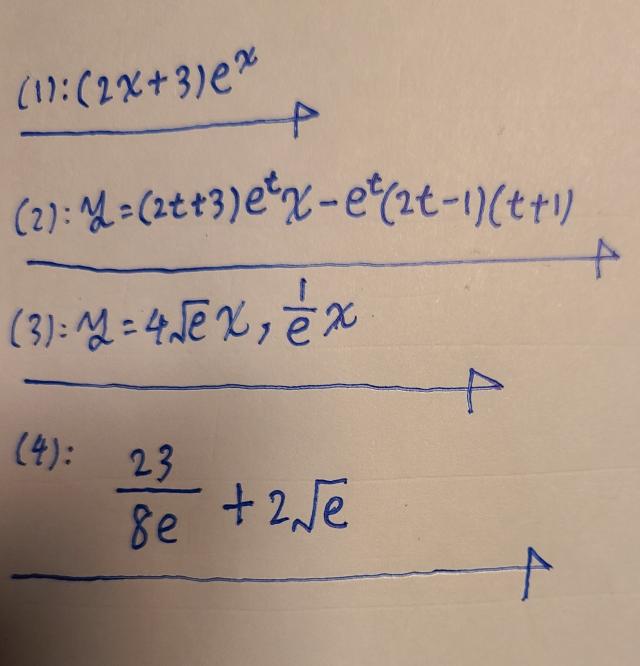 (1): (2x+3)eˣ
(2): y=(2t+3)eᵗx-eᵗ(2t-1)(t+1)
(3): y=4√e x, 1/e x
(4): 23/8e + 2√e